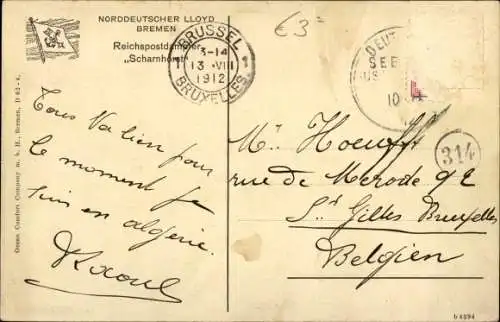 NORDDEUTSCHER LLOYD
BREMEN
Reichspostdampfer
„Scharnhorst"
€3
BRUSSEL
3-14
1 13 VIII 1
1912
BRUXELLES
DEUT
SEE
10
314
Tous va bien pour
le moment je
suis en algérie.
Raoul
Mr Houufs
rue de Merode 92
St Gilles Bruxelles
Belgien
Osnas. Comfort Company m. b. H., Bremen, D 82-4.
b 4894